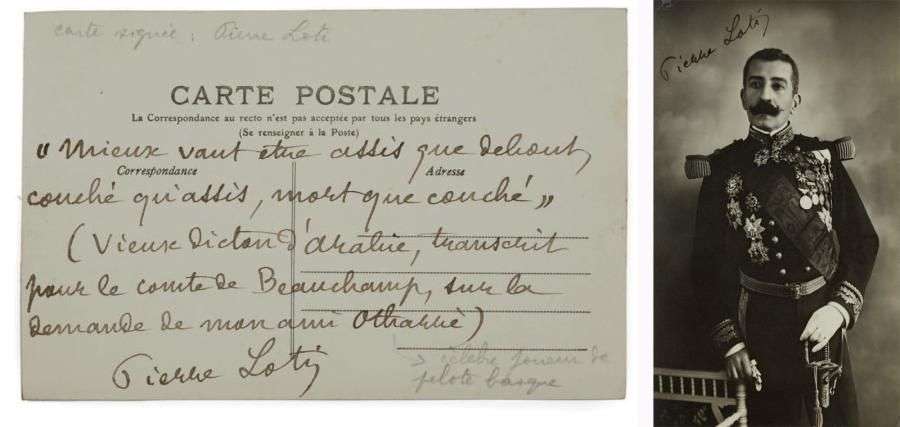 carte signée : Pierre Loti
CARTE POSTALE
La Correspondance au recto n'est pas acceptée par tous les pays étrangers
(Se renseigner à la Poste)
« Mieux vaut être assis que debout,
Correspondance
Adresse
couché qu'assis, mort que couché »
(Vieux dicton d'Arabie, transcrit
pour le comte de Beauchamp, sur la
demande de mon ami Otharré)
→ célèbre joueur de
pelote basque
Pierre Loti
Pierre Loti